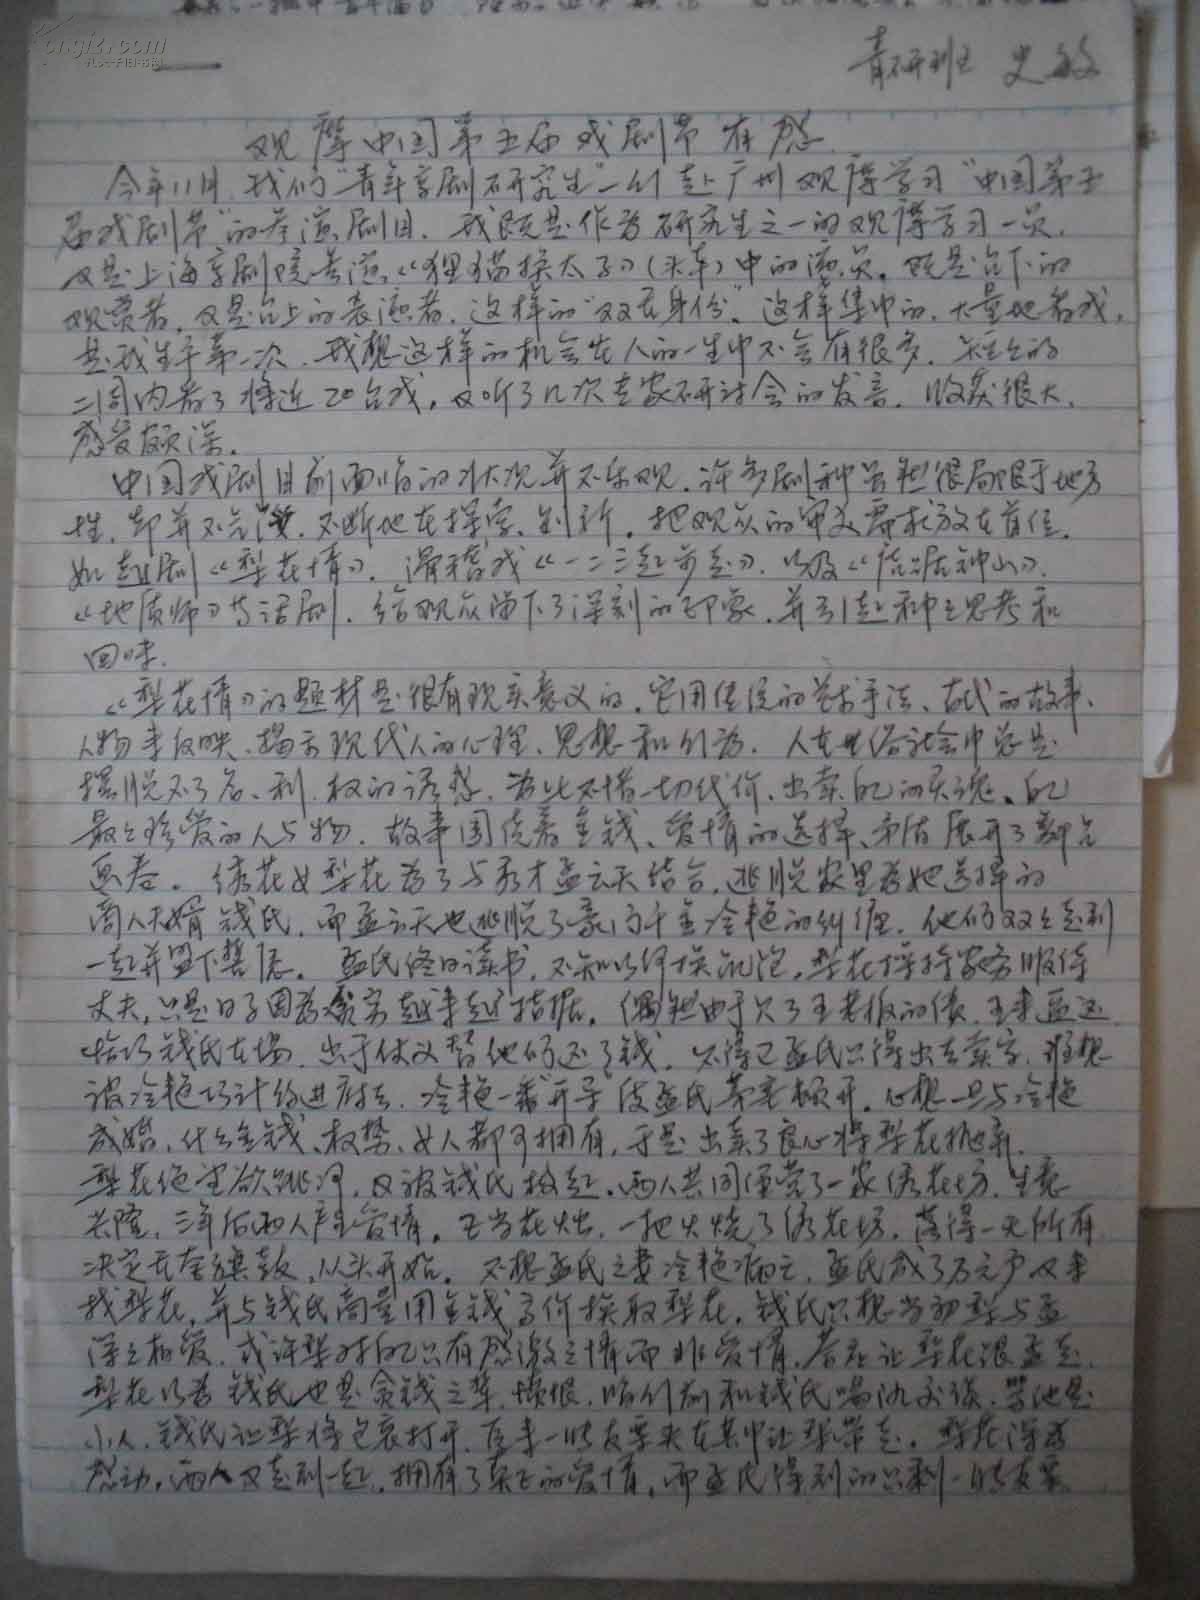 青研班 史敏
观摩中国第五届戏剧节有感
今年11月,我们"青年京剧研究生"一行赴广州观摩学习"中国第五
届戏剧节"的参演剧目。我既是作为研究生之一的观摩学习一员,
又是上海京剧院参演《狸猫换太子》(头本)中的演员。既是台下的
观赏者,又是台上的表演者,这样的"双重身份",这样集中的,大量地看戏,
是我生平第一次,我想这样的机会在人的一生中不会有很多,短短的
二周内看了将近20台戏,又听了几次专家研讨会的发言,收获很大,
感受颇深。
中国戏剧目前面临的状况并不乐观,许多剧种虽然很局限于地方
性,却并不 不断地在探索、创新,把观众的审美需求放在首位,
如越剧《梨花情》,滑稽戏《一二三起步走》,以及
《地质师》等话剧,给观众留下了深刻的印象,并引起种种思考和
回味。
《梨花情》的题材是很有现实意义的,它用传统的艺术手法、古代的故事、
人物来反映、揭示现代人的心理、思想和行为,人在世俗社会中总是
摆脱不了名、利、权的诱惑,为此不惜一切代价,出卖自己的灵魂、自己
最最珍爱的人与物,故事围绕着金钱、爱情的选择、矛盾展开了
画卷。绣花女梨花为了与秀才孟云天结合,逃脱家里为她选择的
商人夫婿钱氏,而孟云天也逃脱了豪门千金冷艳的纠缠,他们双双走到
一起并盟下誓愿。孟氏终日读书,不知以何换饥饱,梨花操持家务服侍
丈夫,只是日子因为贫穷越来越拮据。偶然由于欠了王老板的债,王来逼还
恰巧钱氏在场,出于仗义替他们还了钱。不得已孟氏只得出去卖字,谁想
被冷艳巧计约进府去,冷艳一番"开导"使孟氏茅塞顿开。心想一旦与冷艳
成婚,什么金钱、权势、女人都可拥有,于是出卖了良心将梨花抛弃,
梨花绝望欲跳河,又被钱氏救起。两人共同经营了一家绣花坊,生意
兴隆,三年后两人产生爱情。 一把火烧了绣花坊,落得一无所有
决定重整旗鼓,从头开始。不想孟氏之妻冷艳病亡,孟氏成了万元户又来
找梨花,并与钱氏商量用金钱高价换取梨花,钱氏只想当初梨与孟
深深相爱,或许梨对自己只有感激之情而非爱情,答应让梨花跟孟走,
梨花以为钱氏也是贪钱之辈,愤恨,临行前和钱氏 骂他是
小人,钱氏让梨将包裹打开,原来一张支票夹在其中让梨带走。梨花深为
感动,两人又走到一起,拥有了真正的爱情,而孟氏得到的只剩一张支票